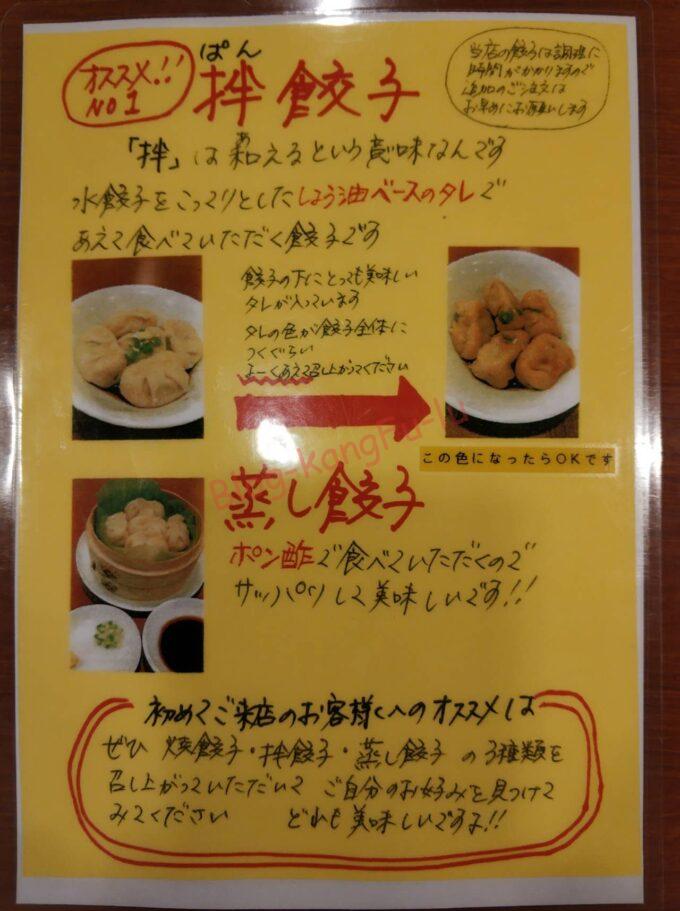 オススメ!!
NO1
ぱん
拌餃子
当店の餃子は調理に
時間がかかりますので
追加のご注文は
お早めにお願いします
あ
「拌」は和えるという意味なんです
水餃子をこってりとしたしょう油ベースのタレで
あえて食べていただく餃子です
餃子の下にとっても美味しい
タレが入っています
タレの色が餃子全体に
つくぐらい
よーくあえて召し上がってください
この色になったらOKです
Bing-KangFu-lu
蒸し餃子
ポン酢で食べていただくので
サッパリして美味しいです!!
初めてご来店のお客様へのオススメは
ぜひ 焼餃子・拌餃子・蒸し餃子 の3種類を
召し上がっていただいて ご自分のお好みを見つけて
みてください どれも美味しいですよ!!